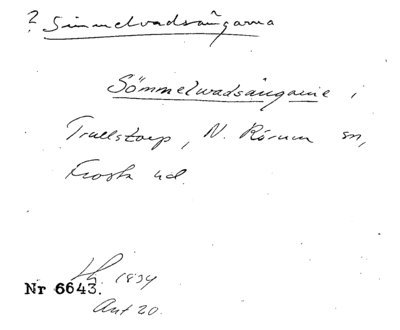 ? Simmelvadsängarna
Sömmelwadsängarne i
Trullstorp, N. Rörum sn,
Frosta hd.
1834
Nr 6643.
Akt 20.